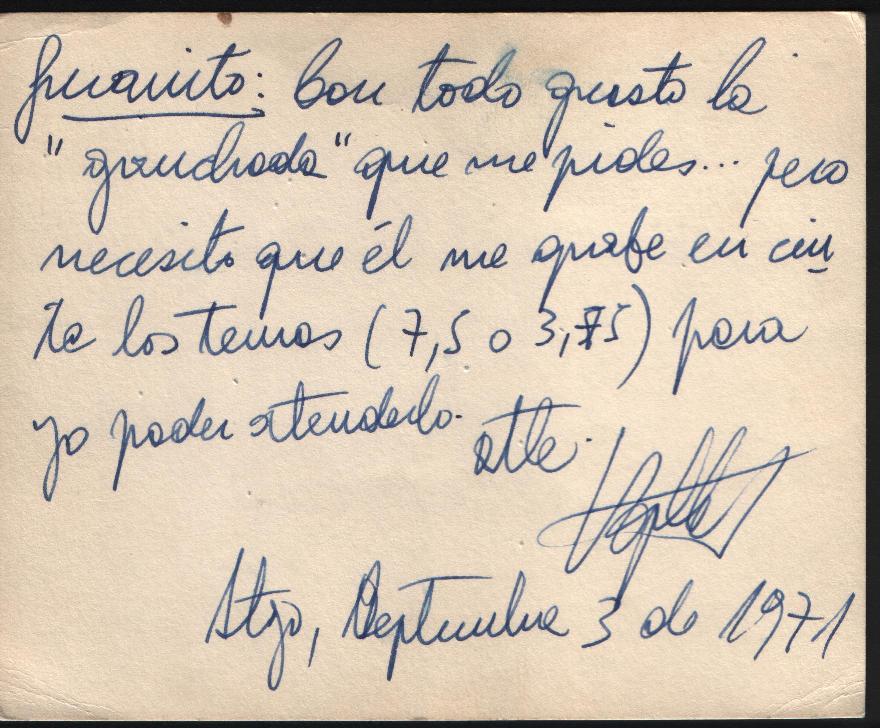 Juanito: Con todo gusto la
"gauchada" que me pides... pero
necesito que él me grabe en cin
ta los temas (7,5 o 3,75) para
yo poder atenderlo.
atte.
Stgo, Septiembre 3 de 1971